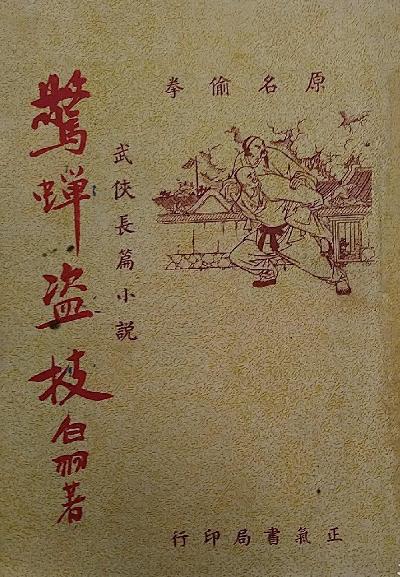 原名偷拳
武俠長篇小説
驚蟬盜技
白羽著
正氣書局印行